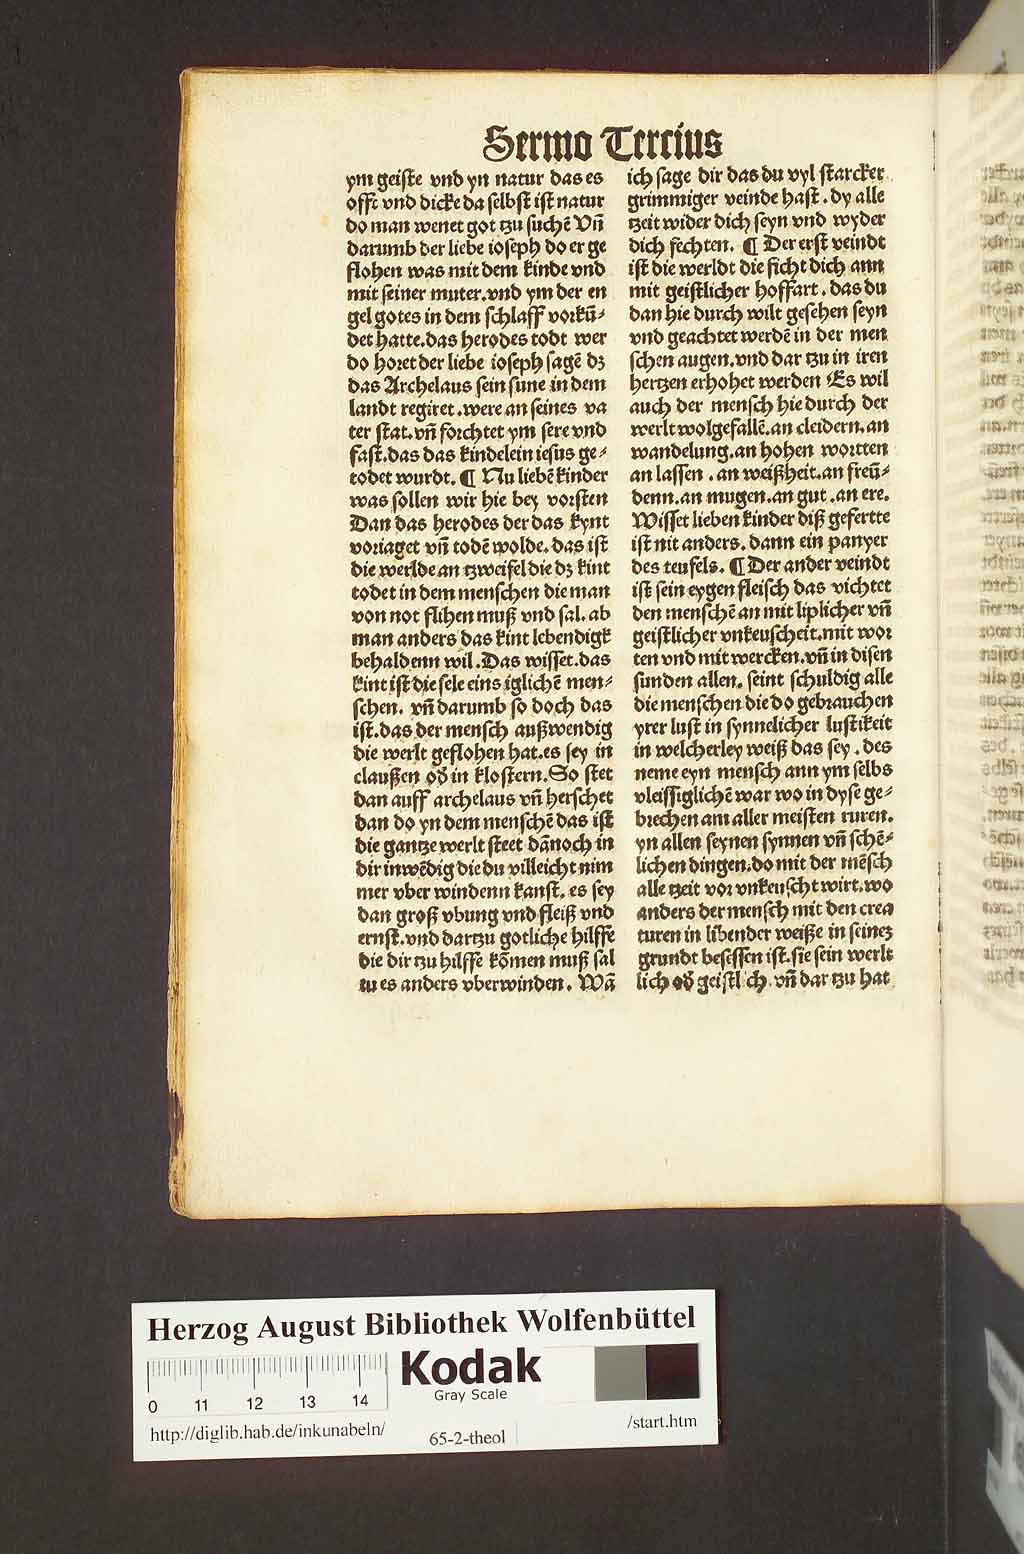 Sermo Tercius
ym geiste vnd yn natur das es
offt vnd dicke da selbst ist natur
do man wenet got tzu suchē Vñ
darumb der liebe ioseph do er ge
flohen was mit dem kinde vnd
mit seiner muter.vnd ym der en
gel gotes in dem schlaff vorkū⸗
det hatte.das herodes todt wer
do horet der liebe ioseph sagē dz
das Archelaus sein sune in dem
landt regiret.were an seines va
ter stat.vñ forchtet ym sere vnd
fast.das das kindelein iesus ge⸗
todet wurdt. ¶ Nu liebē kinder
was sollen wir hie bey vorsten
Dan das herodes der das kynt
voriaget vñ todē wolde.das ist
die werlde an tzweifel die dz kint
todet in dem menschen die man
von not flihen muß vnd sal.ab
man anders das kint lebendigk
behaldenn wil.Das wisset.das
kint ist die sele eins iglichē men⸗
schen. vñ darumb so doch das
ist.das der mensch außwendig
die werlt geflohen hat.es sey in
claußen oď in klostern.So stet
dan auff archelaus vñ herschet
dan do yn dem menschē das ist
die gantze werlt steet dānoch in
dir inwēdig die du villeicht nim
mer vber windenn kanst.es sey
dan groß vbung vnd fleiß vnd
ernst.vnd dartzu gotliche hilffe
die dir tzu hilffe kōmen muß sal
tu es anders vberwinden. Wā
ich sage dir das du vyl starcker
grimmiger veinde hast.dy alle
tzeit wider dich seyn vnd wyder
dich fechten. ¶ Der erst veindt
ist die werldt die ficht dich ann
mit geistlicher hoffart.das du
dan hie durch wilt gesehen seyn
vnd geachtet werdē in der men
schen augen.vnd dar tzu in iren
hertzen erhohet werden Es wil
auch der mensch hie durch der
werlt wolgefallē.an cleidern.an
wandelung.an hohen wortten
an lassen.an weißheit.an freū⸗
denn.an mugen.an gut.an ere.
Wisset lieben kinder diß gefertte
ist nit anders.dann ein panyer
des teufels. ¶ Der ander veindt
ist sein eygen fleisch das vichtet
den menschē an mit liplicher vñ
geistlicher vnkeuscheit.mit wor
ten vnd mit wercken.vñ in disen
sunden allen. seint schuldig alle
die menschen die do gebrauchen
yrer lust in synnelicher lustikeit
in welcherley weiß das sey.des
neme eyn mensch ann ym selbs
vleissiglichē war wo in dyse ge⸗
brechen am aller meisten ruren.
yn allen seynen synnen vñ schē⸗
lichen dingen.do mit der mēsch
alle tzeit vor vnkeuscht wirt.wo
anders der mensch mit den crea
turen in libender weiße in seinez
grundt besessen ist.sie sein werlt
lich oď geistlich.vñ dar tzu hat
Herzog August Bibliothek Wolfenbüttel
Kodak
Gray Scale
0 11 12 13 14
http://diglib.hab.de/inkunabeln/
65-2-theol
/start.htm